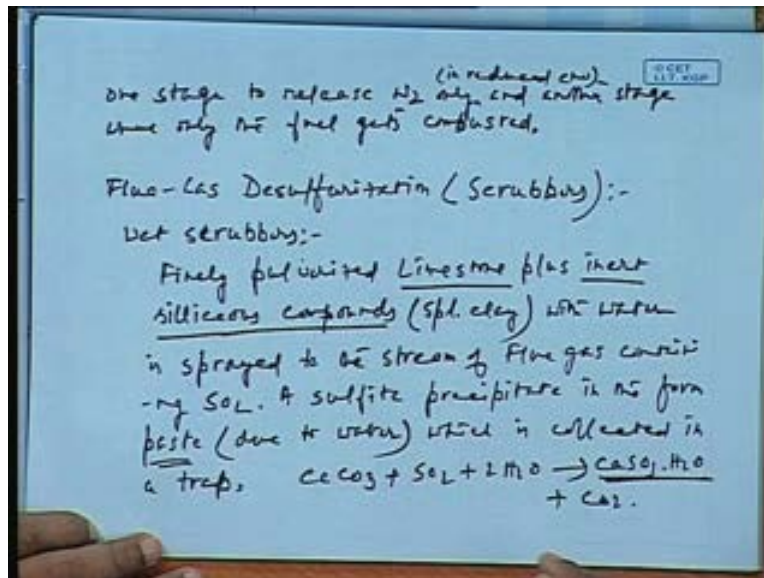 (in reduced env)
© CET
I.I.T. KGP
one stage to release N2 only and another stage
where only the fuel gets combusted.
Flue-Gas Desulfurization (Scrubbers):-
Wet scrubbers:-
Finely pulverized Limestone plus inert
silliceous compounds (spl. clay) with water
is sprayed to the stream of Flue gas contain
-ing SO2. A sulfite precipitate in the form
paste (due to water) which is collected in
a trap. CaCO3 + SO2 + 2H2O → CaSO3.H2O
+ CO2.